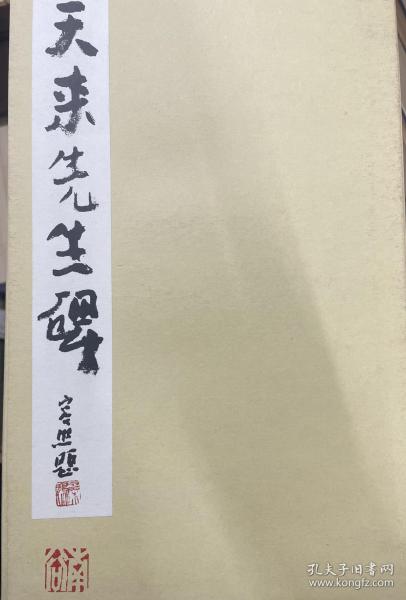 天来先生碑
空照題
南谷
孔夫子旧书网
www.kongfz.com